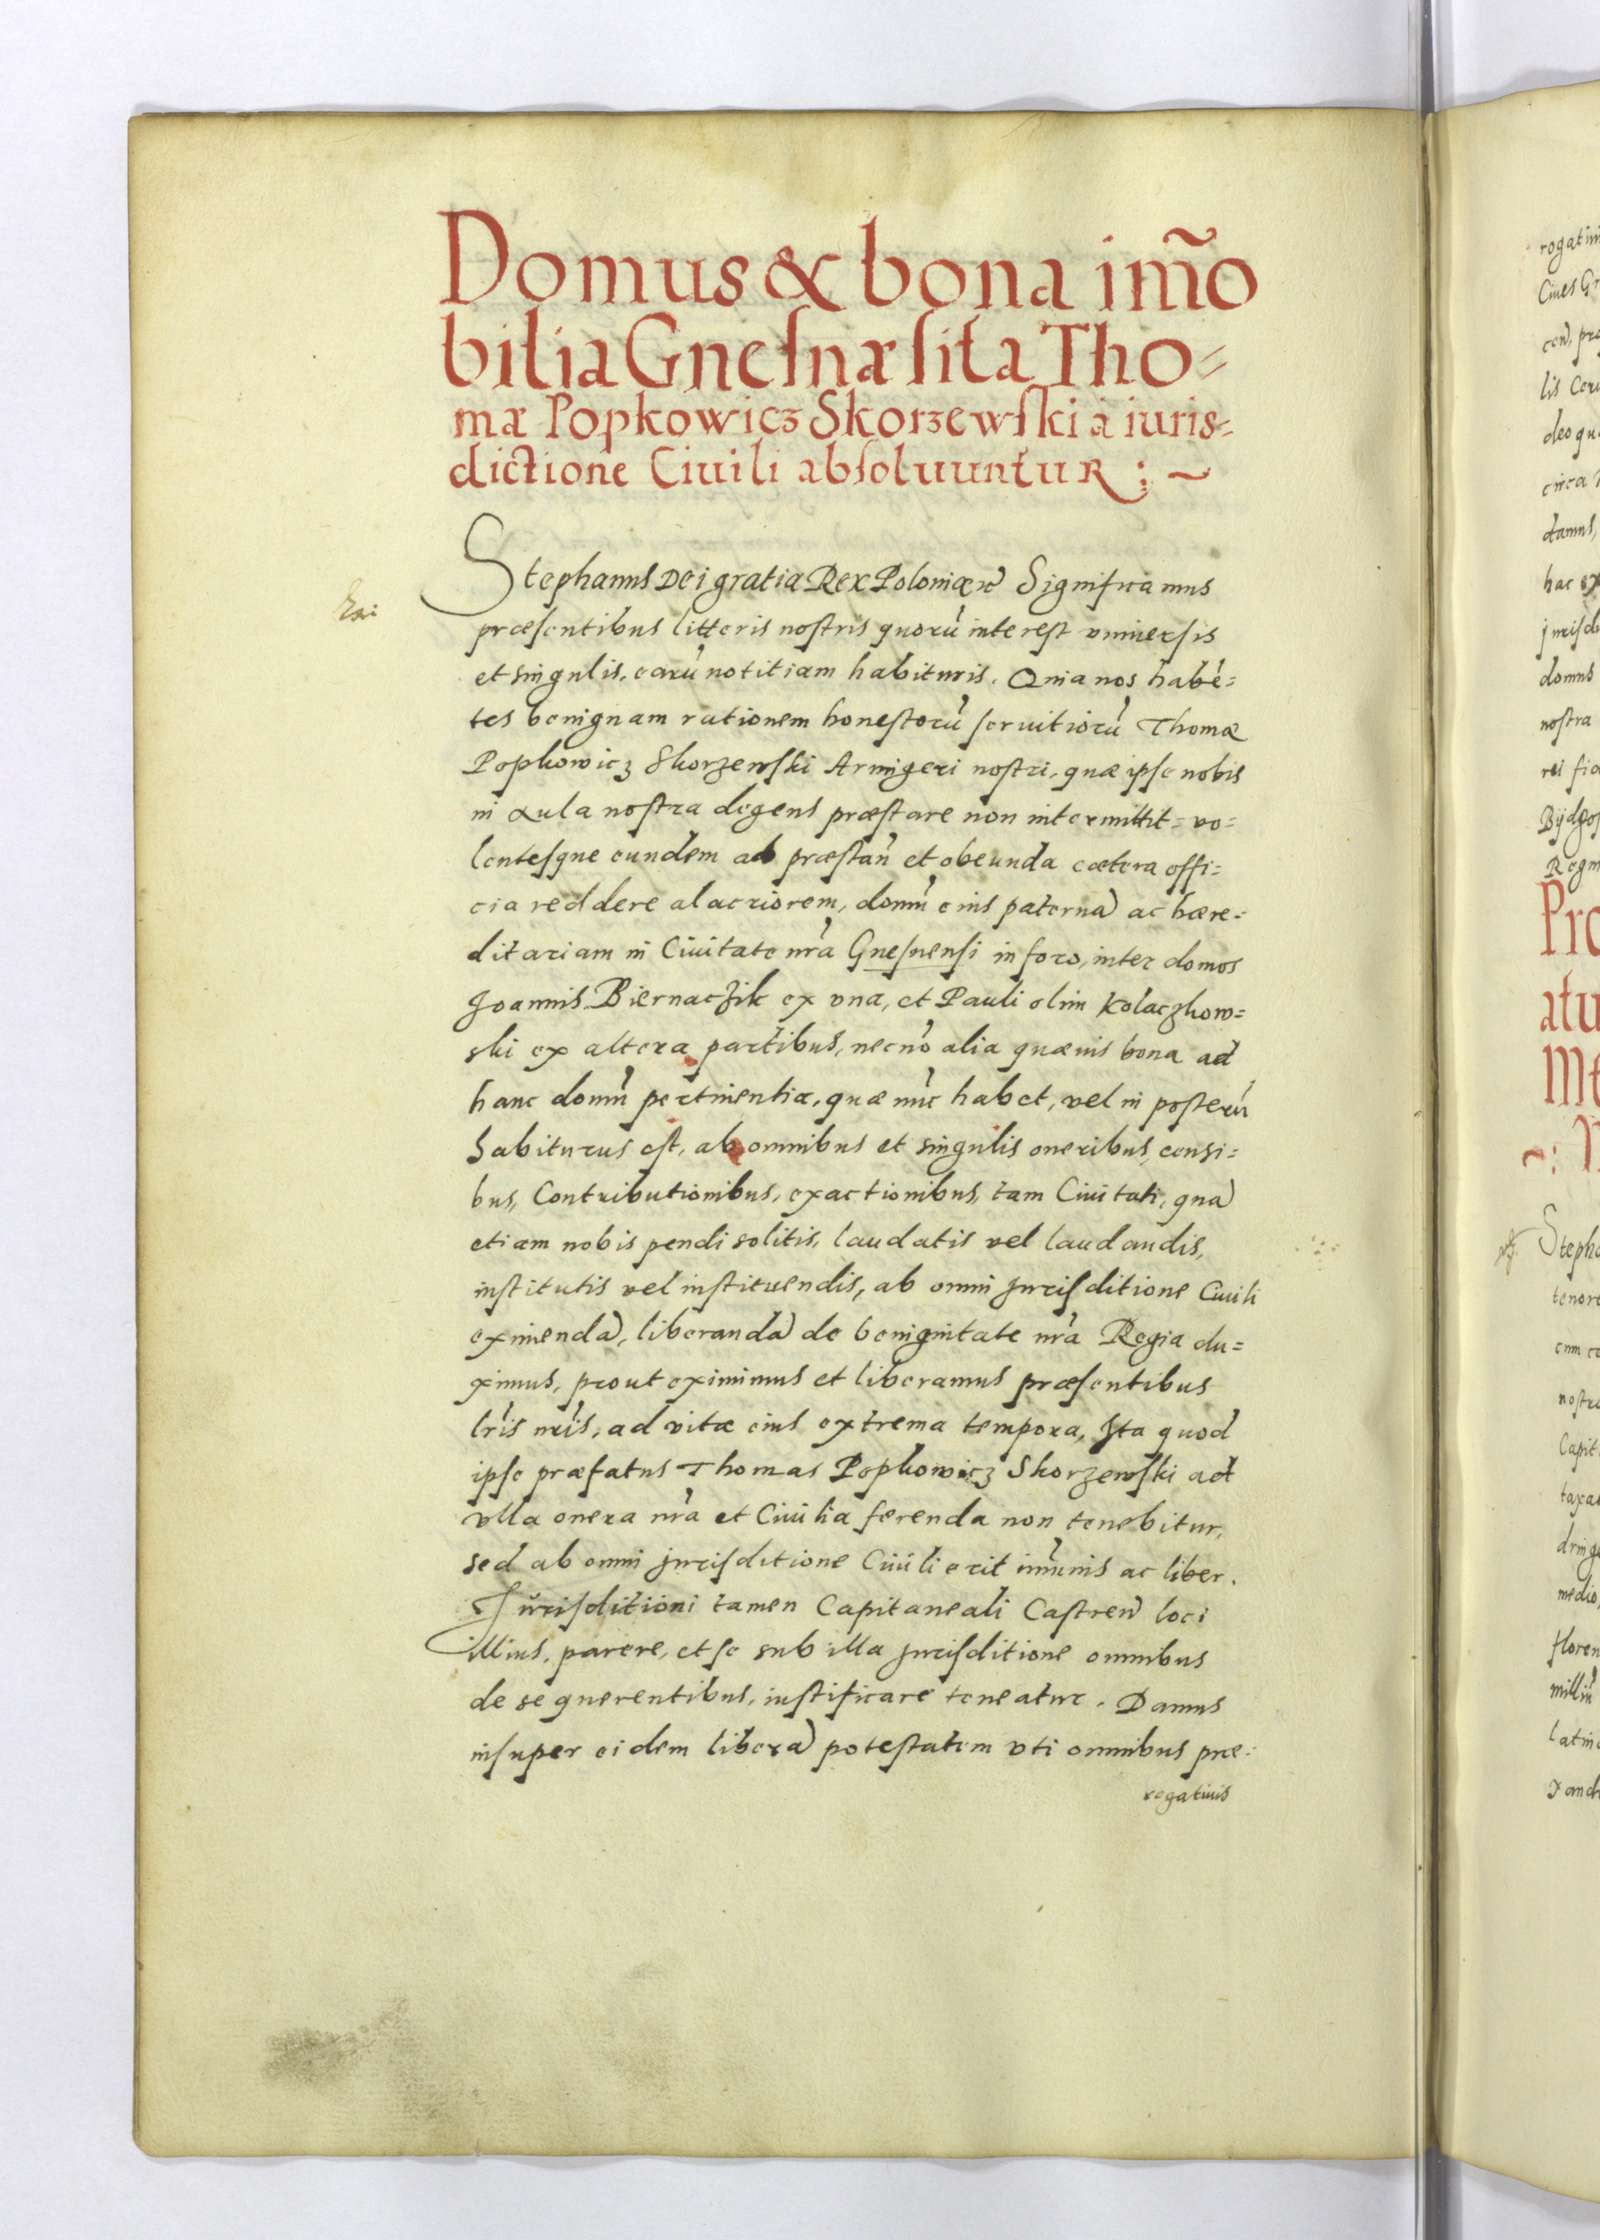 Domus & bona im̃o
bilia Gneſnæ ſita Tho=
mæ Popkowicz Skorzewſki à iuris=
dictione Ciuili abſoluuntur :~
Stephanus Dei gratia Rex Poloniæ Significamus
præſentibus litteris noſtris quorũ intereſt vniuerſis
et singulis, earũ notitiam habituris. Quia nos habẽ=
tes benignam rationem honeſtorũ ſeruitiorũ Thomæ
Popkowicz Skorzewſki Armigeri noſtri, quæ ipſe nobis
in Aula noſtra degens præſtare non intermittit= vo=
lenteſque eundem ad præſtañ et obeunda cætera offi=
cia reddere alacriorem, domũ eius paternã ac hære=
ditariam in Ciuitate nr̃a Gneſnenſi in foro, inter domos
Joannis Biernaczik ex vna, et Pauli olim Kolaczkow=
ski ex altera partibus, necnõ alia quæuis bona ad
hanc domũ pertinentia, quæ nũc habet, vel in poſterũ
habiturus eſt, ab omnibus et singulis oneribus, censi=
bus, Contributionibus, exactionibus, tam Ciuitati, quã
etiam nobis pendi solitis, laudatis vel laudandis,
inſtitutis vel inſtituendis, ab omni juriſditione Ciuili
eximendã, liberandã de benignitate nr̃a Regia du=
ximus, prout eximimus et liberamus præſentibus
lr̃is nr̃is, ad vitæ eius extrema tempora, Ita quod
ipſe præfatus Thomas Popkowicz Skorzewſki ad
vlla onera nr̃a et Ciuilia ferenda non tenebitur,
sed ab omni juriſditione Ciuili erit im̃unis ac liber.
Juriſditioni tamen Capitaneali Caſtreñ loci
illius, parere, et ſe sub illa juriſditione omnibus
de se querentibus, iuſtificare teneatur. Damus
inſuper eidem liberã poteſtatem vti omnibus præ=
rogatiuis
rogatiui
Ciues
lis
circa
damus,
hac ex
juriſdi
domus
noſtra
rei
Regni
Pro
atu
Me
Stepha
tenore
cum
noſtr
Capit
medio,
floren
milliũ